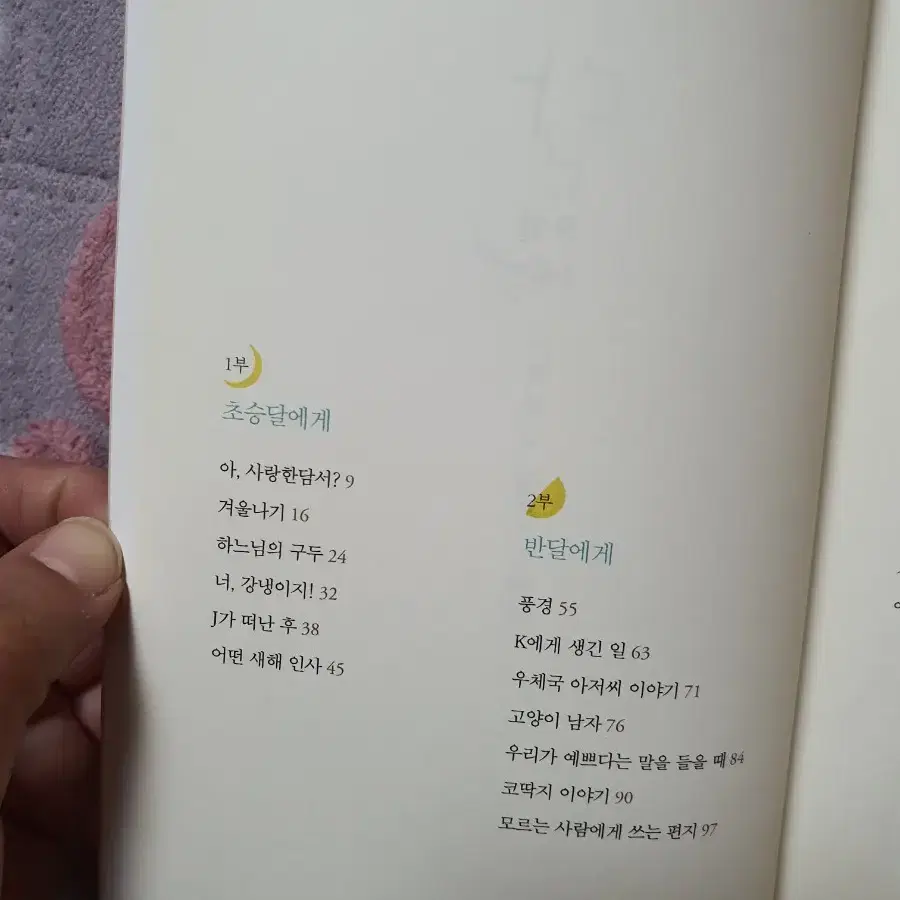 1부
초승달에게
아, 사랑한담서? 9
겨울나기 16
하느님의 구두 24
너, 강냉이지! 32
J가 떠난 후 38
어떤 새해 인사 45
2부
반달에게
풍경 55
K에게 생긴 일 63
우체국 아저씨 이야기 71
고양이 남자 76
우리가 예쁘다는 말을 들을 때 84
코딱지 이야기 90
모르는 사람에게 쓰는 편지 97